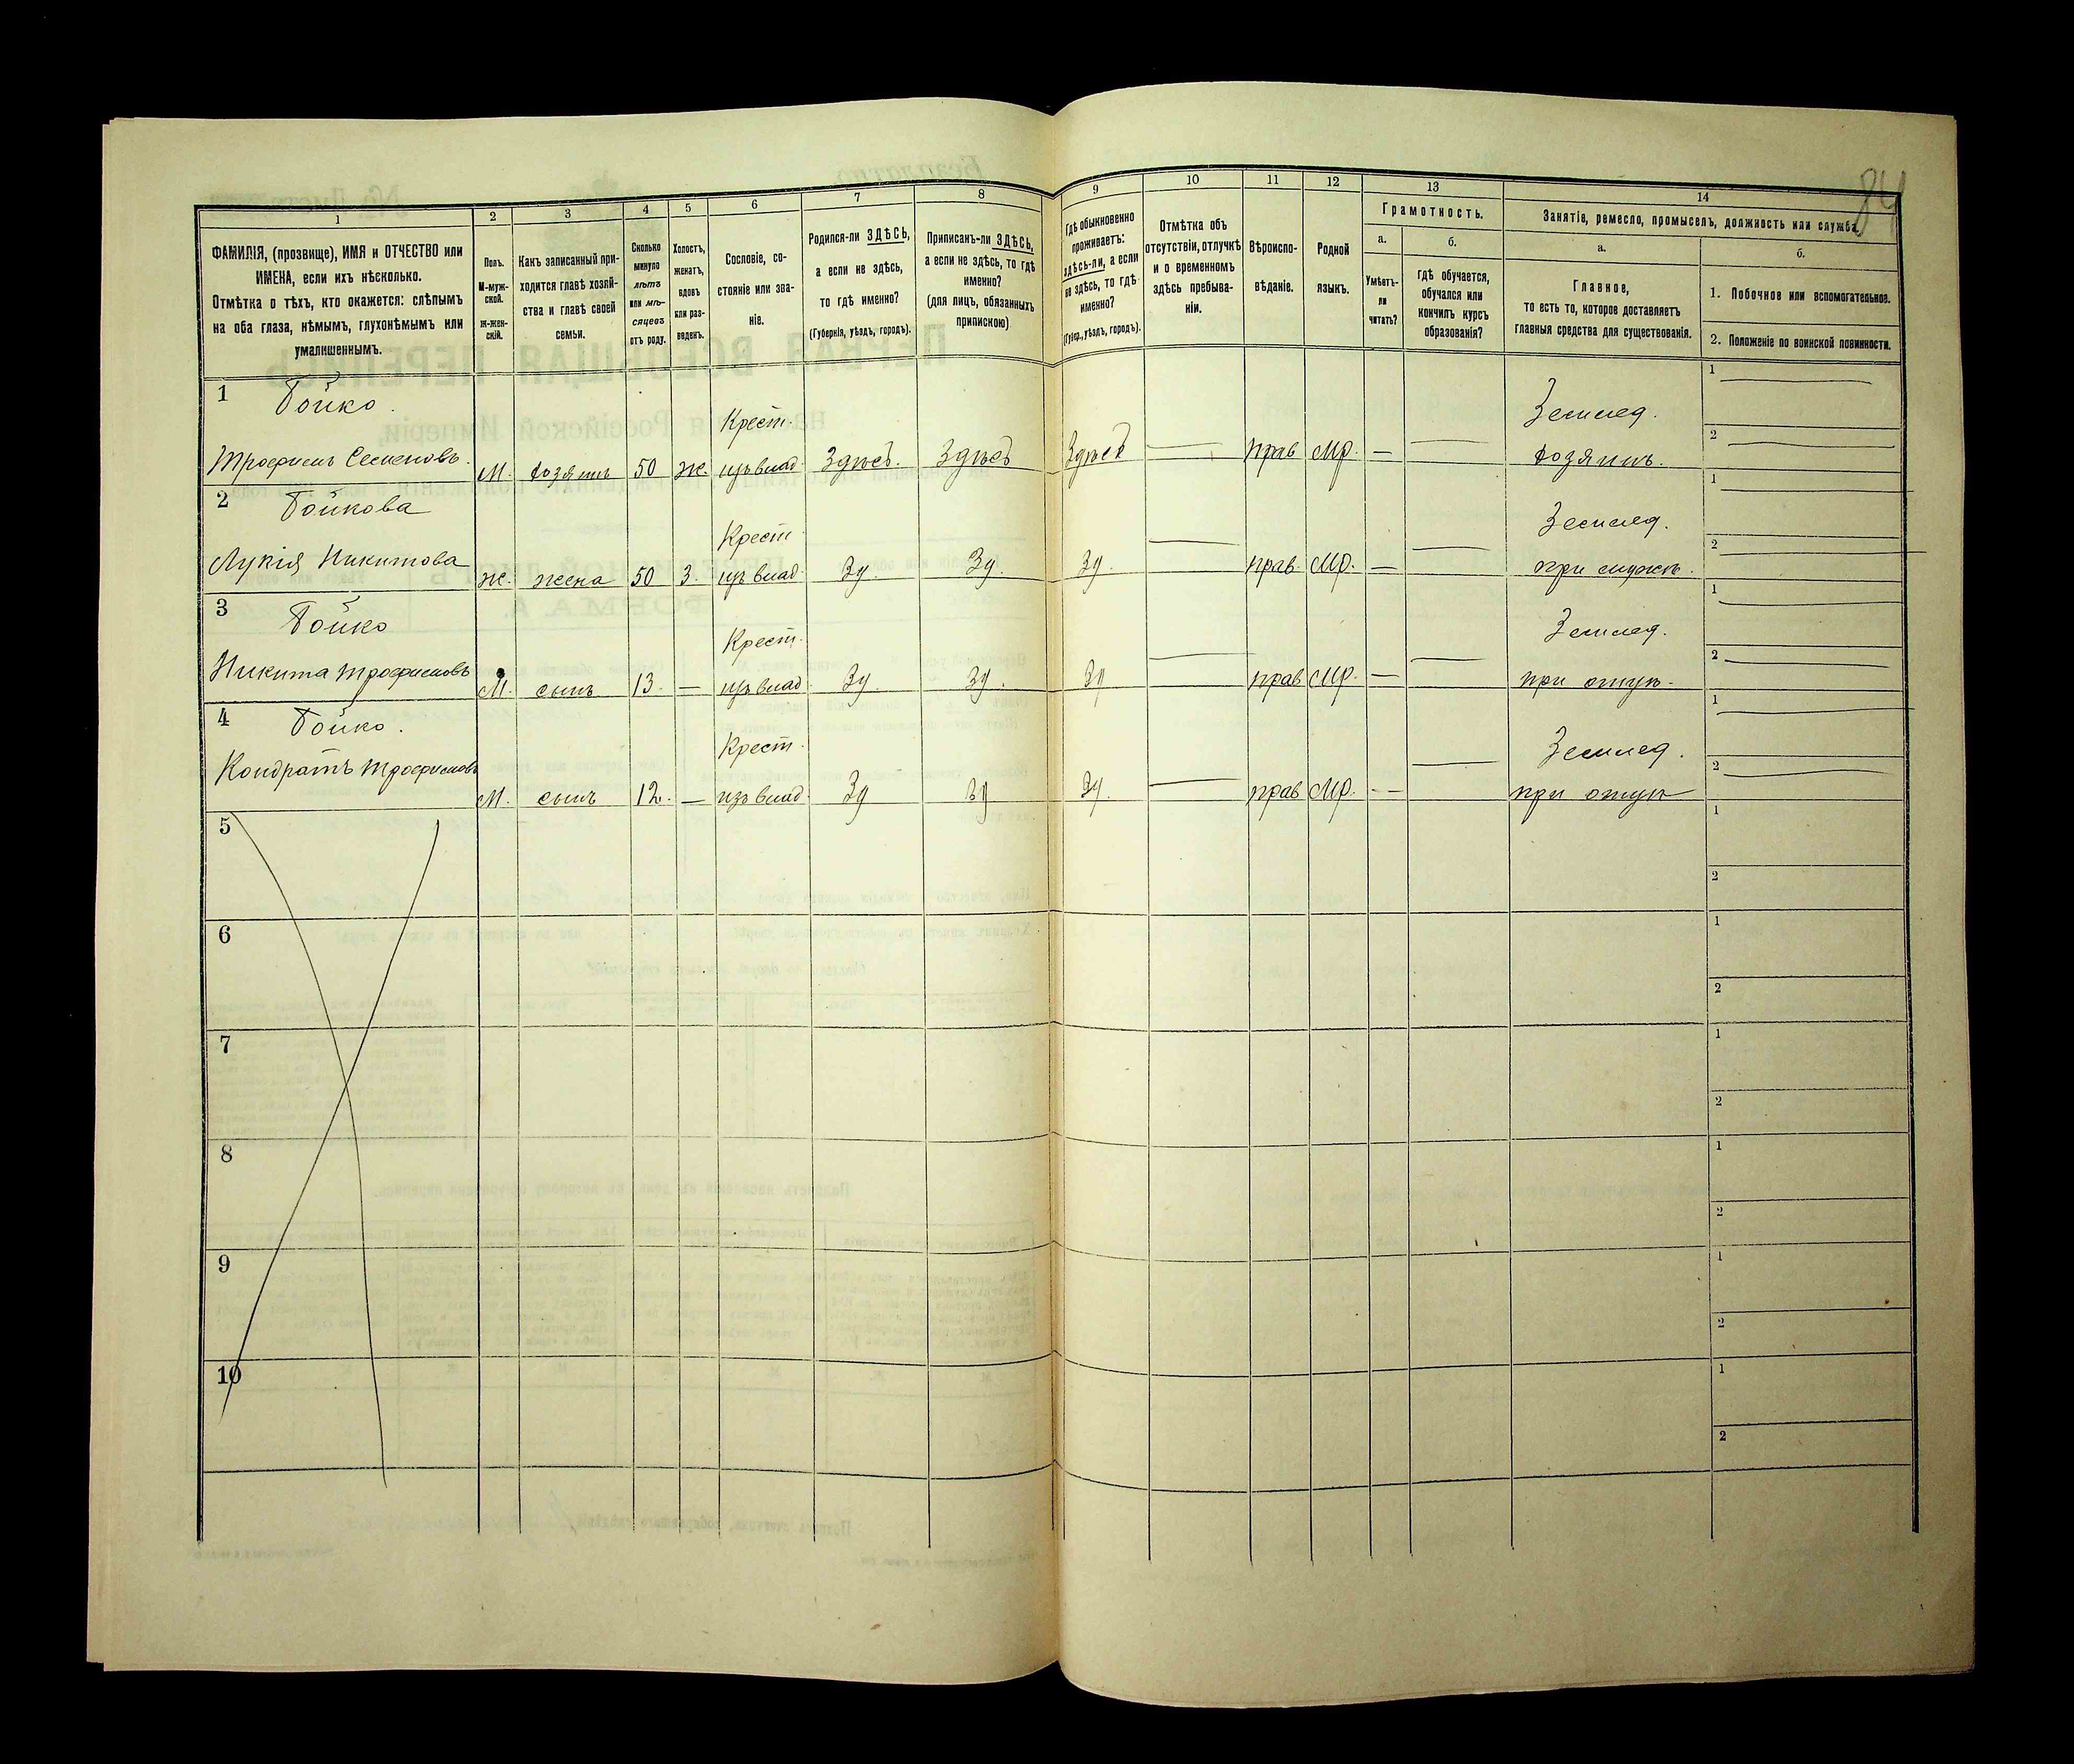 84
1
2
3
4
5
6
7
8
9
10
11
12
13
14
ФАМИЛІЯ, (прозвище), ИМЯ и ОТЧЕСТВО или
ИМЕНА, если ихъ нѣсколько.
Отмѣтка о тѣхъ, кто окажется: слѣпымъ
на оба глаза, нѣмымъ, глухонѣмымъ или
умалишеннымъ.
Полъ.
М-муж-
ской.
Ж-жен-
скій.
Какъ записанный при-
ходится главѣ хозяй-
ства и главѣ своей
семьи.
Сколько
минуло
лѣтъ
или мѣ-
сяцевъ
отъ роду.
Холостъ,
женатъ,
вдовъ
или раз-
веденъ.
Сословіе, со-
стояніе или зва-
ніе.
Родился-ли ЗДѢСЬ,
а если не здѣсь,
то гдѣ именно?
(Губернія, уѣздъ, городъ).
Приписанъ-ли ЗДѢСЬ,
а если не здѣсь, то гдѣ
именно?
(для лицъ, обязанныхъ
припискою)
Гдѣ обыкновенно
проживаетъ:
здѣсь-ли, а если
не здѣсь, то гдѣ
именно?
(Губер., уѣздъ, городъ).
Отмѣтка объ
отсутствіи, отлучкѣ
и о временномъ
здѣсь пребыва-
ніи.
Вѣроиспо-
вѣданіе.
Родной
языкъ.
Грамотность.
а.
Умѣетъ-
ли
читать?
б.
гдѣ обучается,
обучался или
кончилъ курсъ
образованія?
Занятіе, ремесло, промыселъ, должность или служба.
а.
Главное,
то есть то, которое доставляетъ
главныя средства для существованія.
б.
1. Побочное или вспомогательное.
2. Положеніе по воинской повинности.
1 Бойко.
Крест.
Землед.
1
2
Трофимъ Семеновъ. М. хозяинъ 50 ж. изъ влад. Здѣсь. Здѣсь Здѣсь — прав Мр. — — хозяинъ.
2 Бойкова
Крест
Землед.
1
2
Лукія Никитова ж. жена 50 З. изъ влад. Зд. Зд. Зд. — прав. Мр. — — при мужѣ.
3 Бойко
Крест.
Землед.
1
2
Никита Трофимовъ М. сынъ 13. — изъ влад. Зд. Зд. Зд — прав Мр. — — при отцѣ.
4 Бойко.
Крест.
Землед.
1
2
Кондратъ Трофимовъ М. сынъ 12. — изъ влад. Зд Зд Зд. — прав Мр. — — при отцѣ
5
1
2
6
1
2
7
1
2
8
1
2
9
1
2
10
1
2